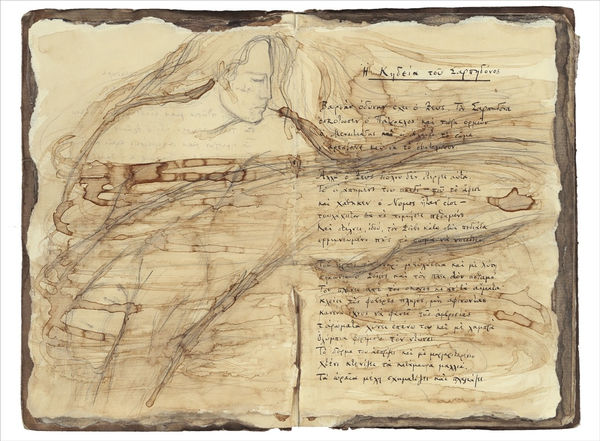 Ἡ Κηδεία τοῦ Σαρπηδόνος
Βαρυὰν ὀδύνην ἔχει ὁ Ζεύς. Τὸν Σαρπηδόνα
ἐσκότωσεν ὁ Πάτροκλος καὶ τώρα ὁρμοῦν
ὁ Μενοιτιάδης κ' οἱ Ἀχαιοὶ τὸ σῶμα
ν' ἁρπάξουνε καὶ νὰ τὸ
Ἀλλὰ ὁ Ζεὺς διόλου δὲν στέργει αὐτά.
Τὸ ἀγαπημένο του παιδὶ — ποῦ τὸ ἄφισε
καὶ χάθηκεν ὁ Νόμος ἦταν ἔτσι —
τουλάχιστον θὰ τὸ τιμήσει πεθαμένο.
Καὶ στέλνει, ἰδού, τὸν Φοῖβο κάτω στὴν πεδιάδα
ἑρμηνευμένο πῶς τὸ σῶμα νὰ νοιασθεῖ.
Τοῦ ἥρωος τὸν νεκρὸ μ' εὐλάβεια καὶ μὲ λύπη
σηκώνει ὁ Φοῖβος καὶ τὸν πάει στὸν ποταμό.
Τὸν πλένει ἀπὸ τὲς σκόνες κι ἀπ' τὰ αἵματα
κλείει τὲς φοβερὲς πληγές, μὴ ἀφίνοντας
κανένα ἴχνος νὰ φανεῖ τῆς ἀμβροσίας
τ' ἀρώματα χύνει ἐπάνω του καὶ μὲ λαμπρὰ
Ὀλύμπια φορέματα τὸν ντύνει.
Τὸ δέρμα του ἀσπρίζει καὶ μὲ μαργαριταρένιο
χτένι κτενίζει τὰ κατάμαυρα μαλλιά.
Τὰ ὡραῖα μέλη σχηματίζει καὶ πλαγιάζει.